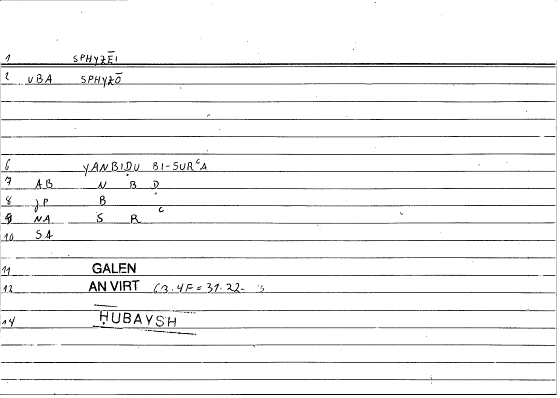 1 SPHYZĒI
2 UBA SPHYZŌ
6 YANBIḌU BI-SURʿA
7 AB N B Ḍ
8 JP B
9 NA S R ʿ
10 SA
11 GALEN
12 AN VIRT 63.4F = 31.22-
14 ḤUBAYSH